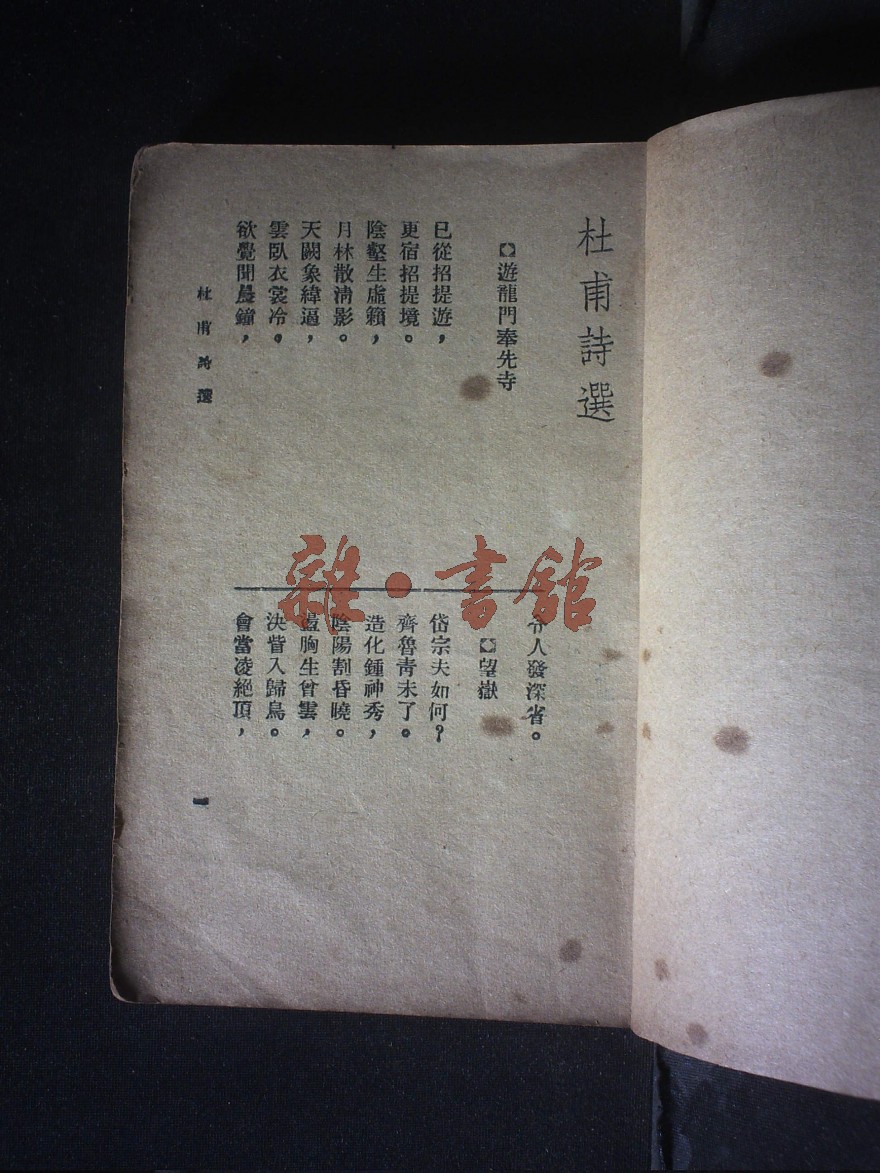 杜甫詩選
遊龍門奉先寺
已從招提遊，
更宿招提境。
陰壑生虛籟，
月林散淸影。
天闕象緯逼，
雲臥衣裳冷。
欲覺聞晨鐘，
令人發深省。
望嶽
岱宗夫如何？
齊魯靑未了。
造化鍾神秀，
陰陽割昏曉。
盪胸生曾雲，
決眥入歸鳥。
會當凌絕頂，
杜甫詩選
一
雜·書館